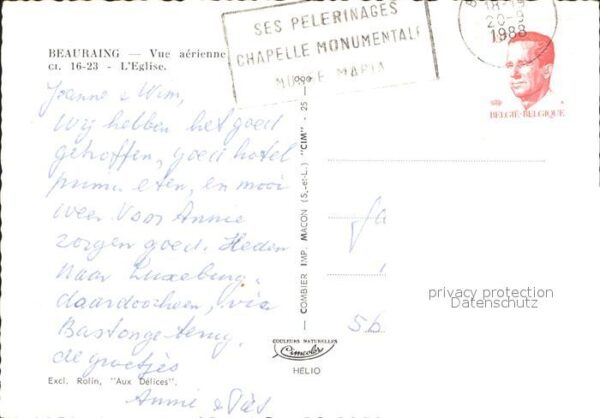 SES PELERINAGES
CHAPELLE MONUMENTALE
MUSEE MARIAL
20-9
1988
BELGIË-BELGIQUE
BEAURAING — Vue aérienne
ct. 16-23 - L'Eglise.
Joanne & Wim,
Wij hebben het goed
getroffen, goed hotel
prima eten, en mooi
weer. Voor Annie
zorgen goed. Heden
naar Luxeburg,
daardoorheen, via
Bastonge terug.
de groetjes
Annie &
Excl. Rolin, "Aux Délices".
— COMBIER IMP. MACON (S.-et-L.) "CIM" - 25 —
COULEURS NATURELLES
Cimcolor
HÉLIO
privacy protection
Datenschutz